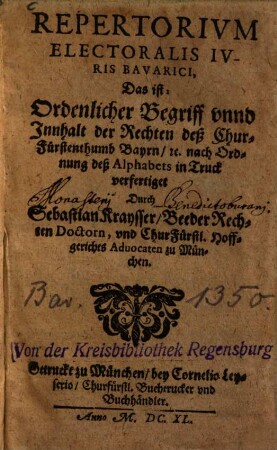 REPERTORIVM
ELECTORALIS IV-
RIS BAVARICI,
Das ist:
Ordenlicher Begriff vnnd
Jnnhalt der Rechten deß Chur-
Fürstenthumb Bayrn/ ꝛc. nach Ord-
nung deß Alphabets in Truck
verfertiget
Monasterij
Durch
Benedictoburani
Sebastian Kraysser/ Beeder Rech-
ten Doctorn, vnd ChurFürstl. Hoff-
gerichts Aduocaten zu Mün-
chen.
Bav. 1350.
Von der Kreisbibliothek Regensburg
Getruckt zu München/ bey Cornelio Ley-
serio/ Churfürstl. Buchtrucker vnd
Buchhändler.
Anno M. DC. XL.